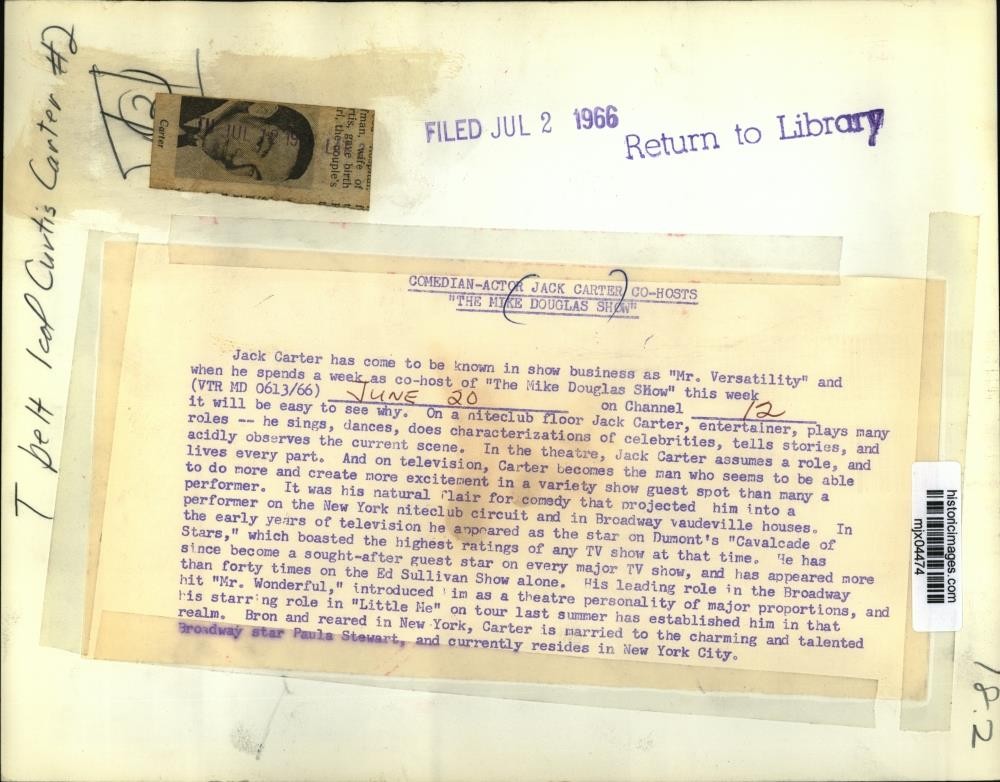 T belt 1 col Curtis Carter #2
Carter
man, wife of
rtis, gave birth
rl, the couple's
JUL
FILED JUL 2 1966
Return to Library
COMEDIAN-ACTOR JACK CARTER CO-HOSTS
"THE MIKE DOUGLAS SHOW"
Jack Carter has come to be known in show business as "Mr. Versatility" and
when he spends a week as co-host of "The Mike Douglas SHow" this week
(VTR MD 0613/66) JUNE 20 on Channel 12
it will be easy to see why. On a niteclub floor Jack Carter, entertainer, plays many
roles -- he sings, dances, does characterizations of celebrities, tells stories, and
acidly observes the current scene. In the theatre, Jack Carter assumes a role, and
lives every part. And on television, Carter becomes the man who seems to be able
to do more and create more excitement in a variety show guest spot than many a
performer. It was his natural flair for comedy that projected him into a
performer on the New York niteclub circuit and in Broadway vaudeville houses. In
the early years of television he appeared as the star on Dumont's "Cavalcade of
Stars," which boasted the highest ratings of any TV show at that time. He has
since become a sought-after guest star on every major TV show, and has appeared more
than forty times on the Ed Sullivan Show alone. His leading role in the Broadway
hit "Mr. Wonderful," introduced him as a theatre personality of major proportions, and
his starring role in "Little Me" on tour last summer has established him in that
realm. Bron and reared in New York, Carter is married to the charming and talented
Broadway star Paula Stewart, and currently resides in New York City.
historicimages.com
mjx04474
18.2